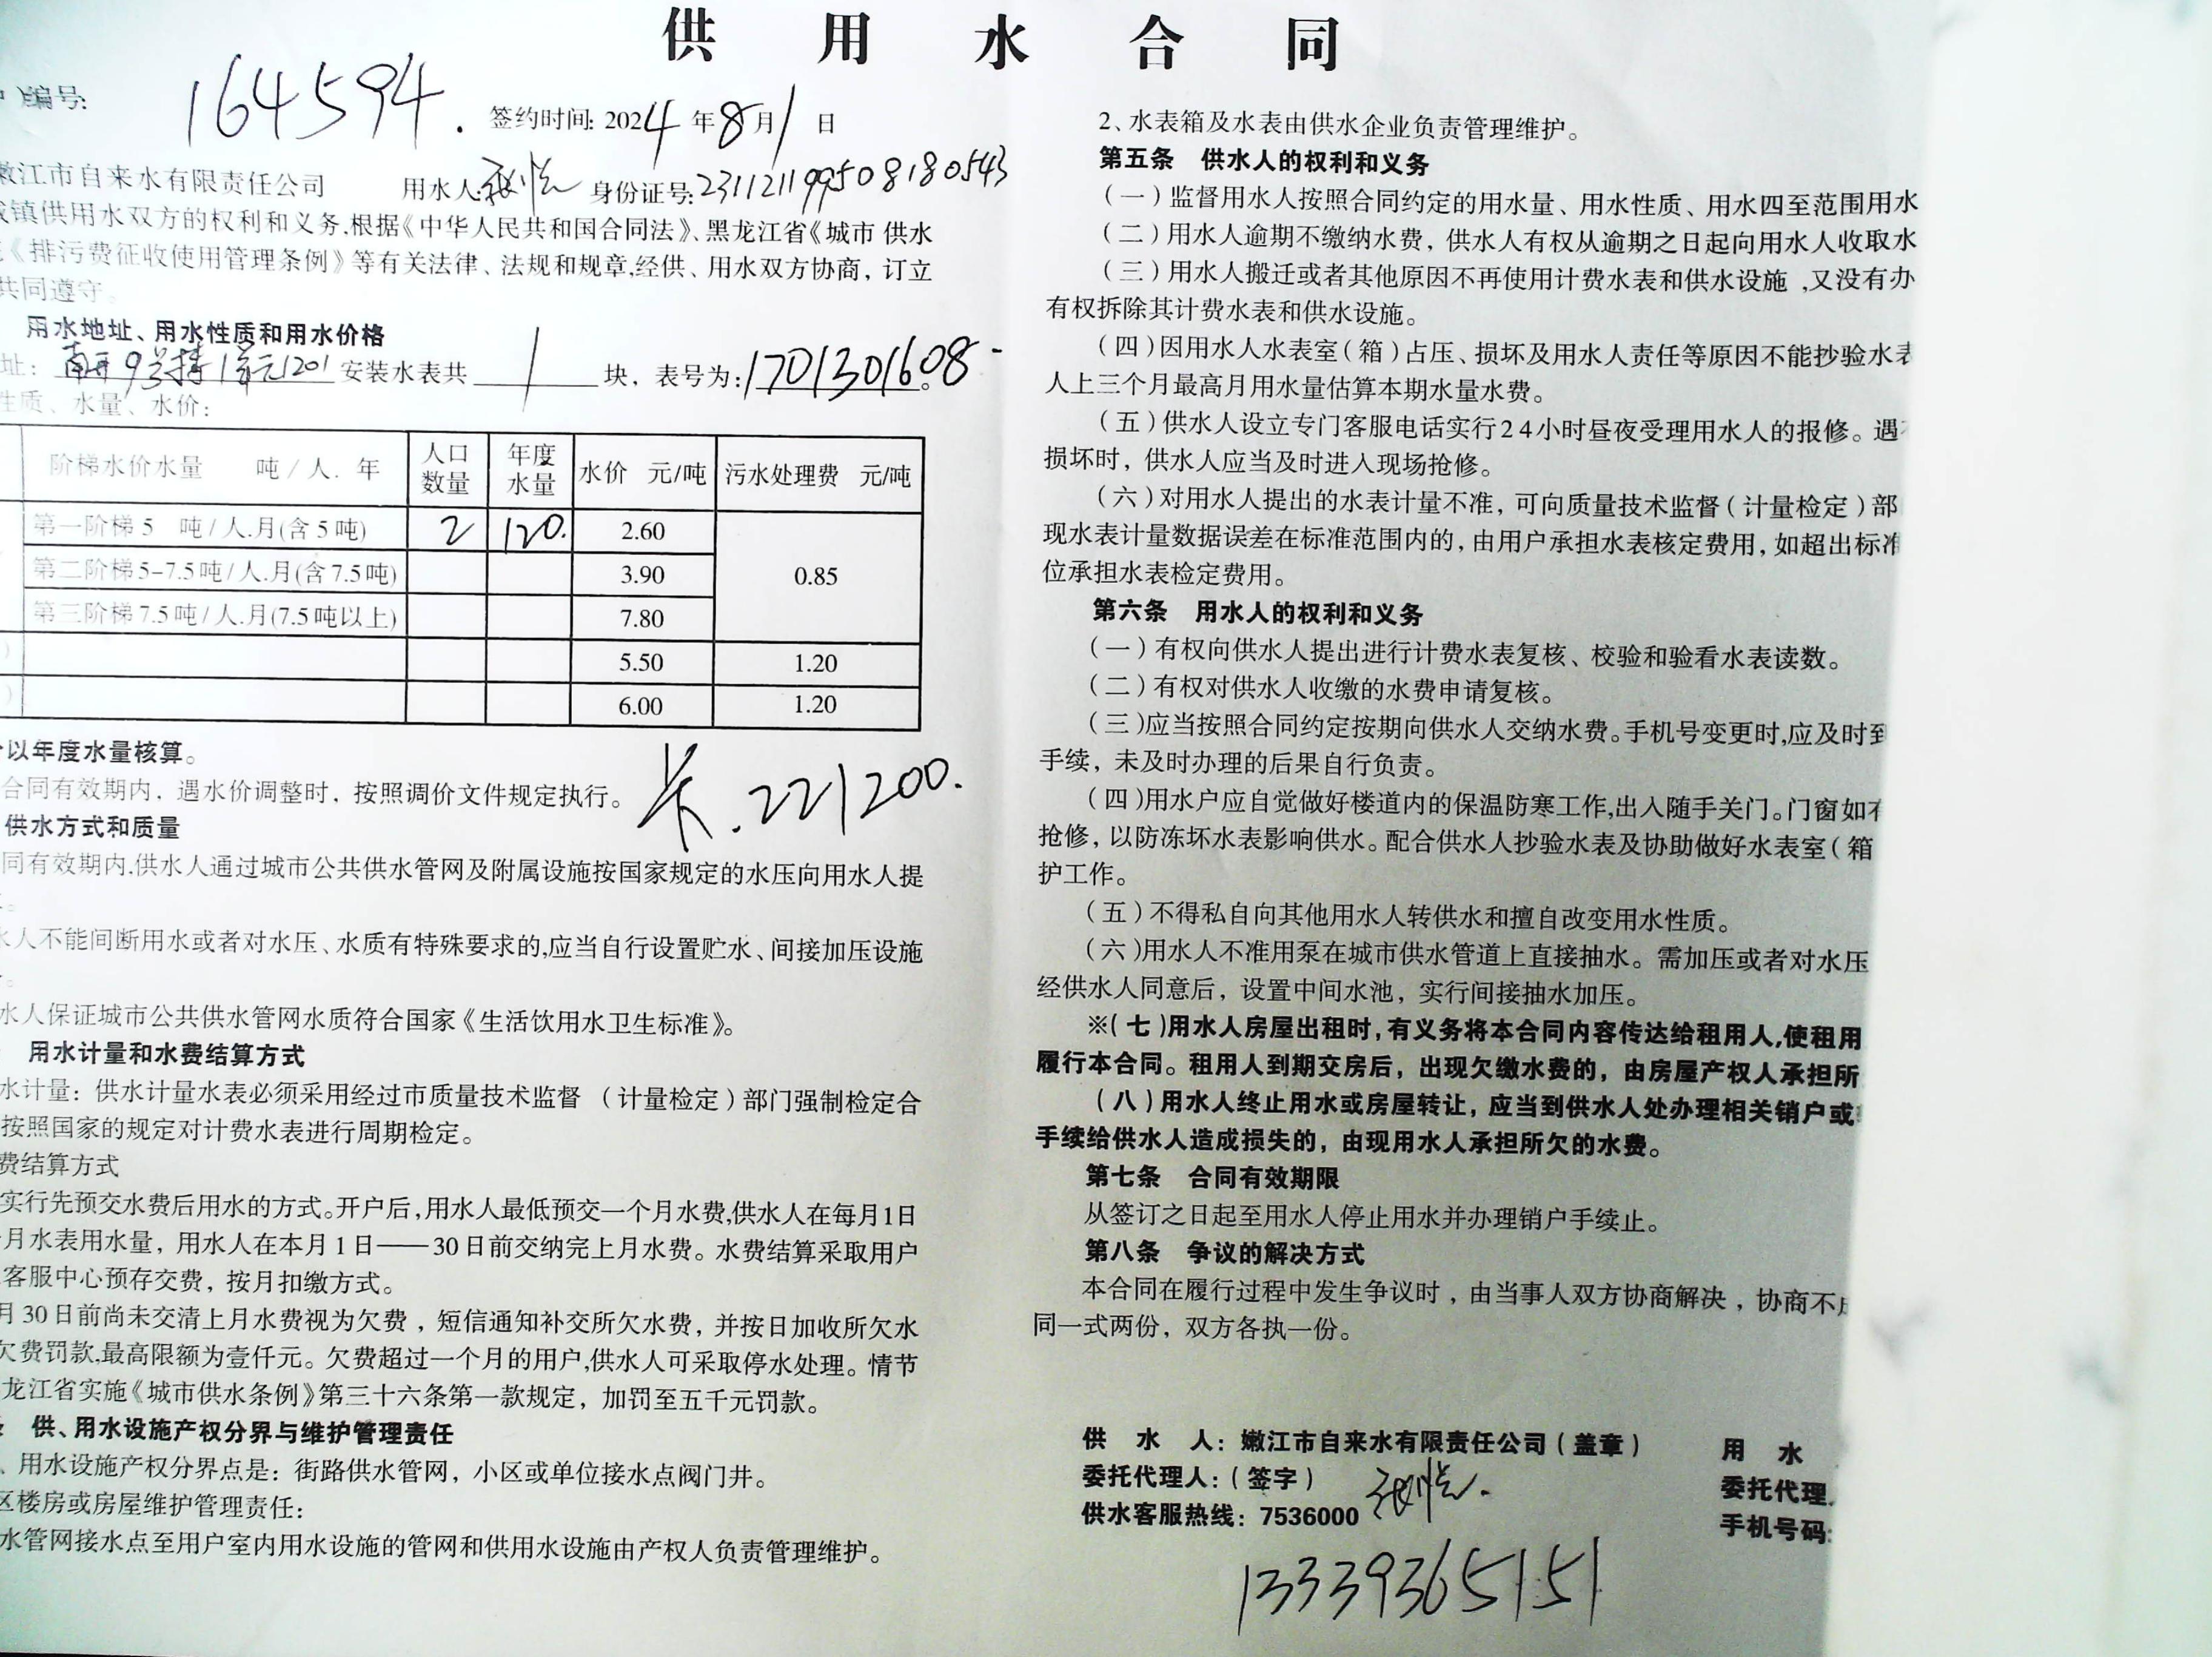 供用水合同
编号: 164594.
签约时间: 2024年8月1日
嫩江市自来水有限责任公司 用水人: 身份证号:231121199508180543
镇供用水双方的权利和义务,根据《中华人民共和国合同法》、黑龙江省《城市 供水
《排污费征收使用管理条例》等有关法律、法规和规章,经供、用水双方协商，订立
共同遵守。
用水地址、用水性质和用水价格
址： 9号楼1单元1201 安装水表共 1 块，表号为:1701301608
性质、水量、水价：
阶梯水价水量 吨/人.年 人口数量 年度水量 水价 元/吨 污水处理费 元/吨
第一阶梯5 吨/人.月(含5吨) 2 120. 2.60 0.85
第二阶梯5-7.5吨/人.月(含7.5吨) 3.90
第三阶梯7.5吨/人.月(7.5吨以上) 7.80
5.50 1.20
6.00 1.20
以年度水量核算。
合同有效期内，遇水价调整时，按照调价文件规定执行。
卡.221200.
供水方式和质量
同有效期内,供水人通过城市公共供水管网及附属设施按国家规定的水压向用水人提
水人不能间断用水或者对水压、水质有特殊要求的,应当自行设置贮水、间接加压设施
水人保证城市公共供水管网水质符合国家《生活饮用水卫生标准》。
用水计量和水费结算方式
水计量：供水计量水表必须采用经过市质量技术监督（计量检定）部门强制检定合
按照国家的规定对计费水表进行周期检定。
费结算方式
实行先预交水费后用水的方式。开户后,用水人最低预交一个月水费,供水人在每月1日
月水表用水量，用水人在本月1日——30日前交纳完上月水费。水费结算采取用户
客服中心预存交费，按月扣缴方式。
月30日前尚未交清上月水费视为欠费，短信通知补交所欠水费，并按日加收所欠水
欠费罚款,最高限额为壹仟元。欠费超过一个月的用户,供水人可采取停水处理。情节
龙江省实施《城市供水条例》第三十六条第一款规定，加罚至五千元罚款。
供、用水设施产权分界与维护管理责任
、用水设施产权分界点是：街路供水管网，小区或单位接水点阀门井。
区楼房或房屋维护管理责任：
水管网接水点至用户室内用水设施的管网和供用水设施由产权人负责管理维护。
2、水表箱及水表由供水企业负责管理维护。
第五条 供水人的权利和义务
（一）监督用水人按照合同约定的用水量、用水性质、用水四至范围用水
（二）用水人逾期不缴纳水费，供水人有权从逾期之日起向用水人收取水
（三）用水人搬迁或者其他原因不再使用计费水表和供水设施,又没有办
有权拆除其计费水表和供水设施。
（四）因用水人水表室（箱）占压、损坏及用水人责任等原因不能抄验水表
人上三个月最高月用水量估算本期水量水费。
（五）供水人设立专门客服电话实行24小时昼夜受理用水人的报修。遇
损坏时，供水人应当及时进入现场抢修。
（六）对用水人提出的水表计量不准，可向质量技术监督（计量检定）部
现水表计量数据误差在标准范围内的,由用户承担水表核定费用,如超出标准
位承担水表检定费用。
第六条 用水人的权利和义务
（一）有权向供水人提出进行计费水表复核、校验和验看水表读数。
（二）有权对供水人收缴的水费申请复核。
（三）应当按照合同约定按期向供水人交纳水费。手机号变更时,应及时到
手续，未及时办理的后果自行负责。
（四）用水户应自觉做好楼道内的保温防寒工作,出入随手关门。门窗如有
抢修，以防冻坏水表影响供水。配合供水人抄验水表及协助做好水表室（箱
护工作。
（五）不得私自向其他用水人转供水和擅自改变用水性质。
（六）用水人不准用泵在城市供水管道上直接抽水。需加压或者对水压
经供水人同意后，设置中间水池，实行间接抽水加压。
※（七）用水人房屋出租时,有义务将本合同内容传达给租用人,使租用
履行本合同。租用人到期交房后，出现欠缴水费的，由房屋产权人承担所
（八）用水人终止用水或房屋转让，应当到供水人处办理相关销户或
手续给供水人造成损失的，由现用水人承担所欠的水费。
第七条 合同有效期限
从签订之日起至用水人停止用水并办理销户手续止。
第八条 争议的解决方式
本合同在履行过程中发生争议时，由当事人双方协商解决，协商不成
同一式两份，双方各执一份。
供 水 人：嫩江市自来水有限责任公司（盖章） 用 水
委托代理人：（签字） 委托代理
供水客服热线：7536000 手机号码:
13339365151